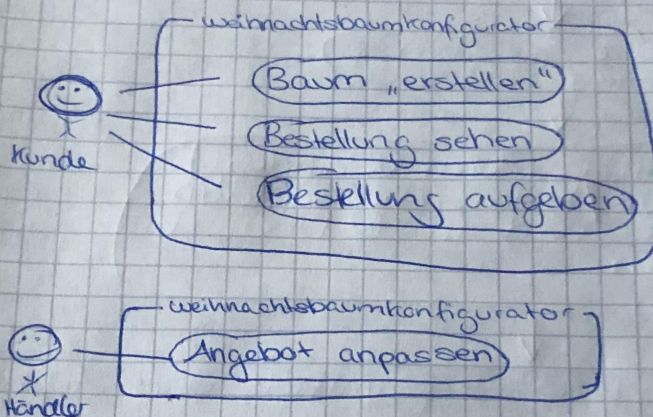 Weihnachtsbaumkonfigurator
Baum „erstellen“
Bestellung sehen
Kunde
Bestellung aufgeben
Weihnachtsbaumkonfigurator
Angebot anpassen
Händler